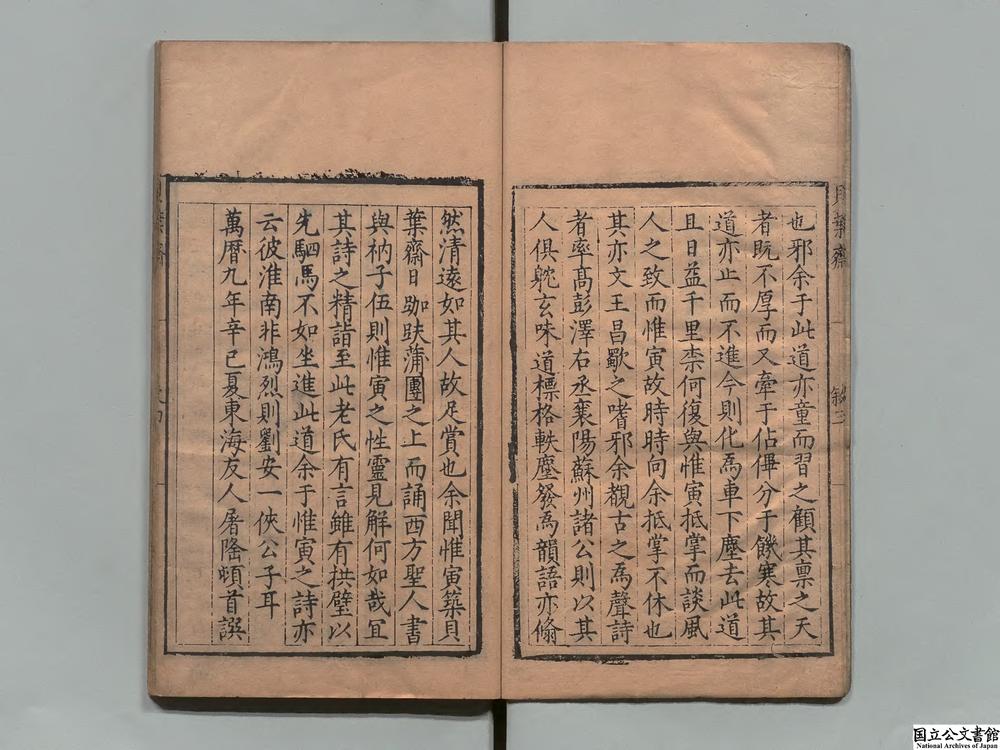 也邪余于此道亦童而習之顧其禀之天
者既不厚而又牽于佔𠌫分于饑寒故其
道亦止而不進今則化為車下塵去此道
且日益千里柰何復與惟寅抵掌而談風
人之致而惟寅故時時向余抵掌不休也
其亦文王昌歜之嗜邪余覩古之為聲詩
者率高彭澤右丞襄陽蘇州諸公則以其
人俱躭玄味道標格軼塵發為韻語亦翛
然清遠如其人故足賞也余聞惟寅築貝
葉齋日跏趺蒲團之上而誦西方聖人書
與衲子伍則惟寅之性靈見解何如哉冝
其詩之精詣至此老氏有言雖有拱璧以
先駟馬不如坐進此道余于惟寅之詩亦
云彼淮南非鴻烈則劉安一俠公子耳
萬曆九年辛巳夏東海友人屠隆頓首譔
貝葉齋
敘三
葉齋
国立公文書館
National Archives of Japan